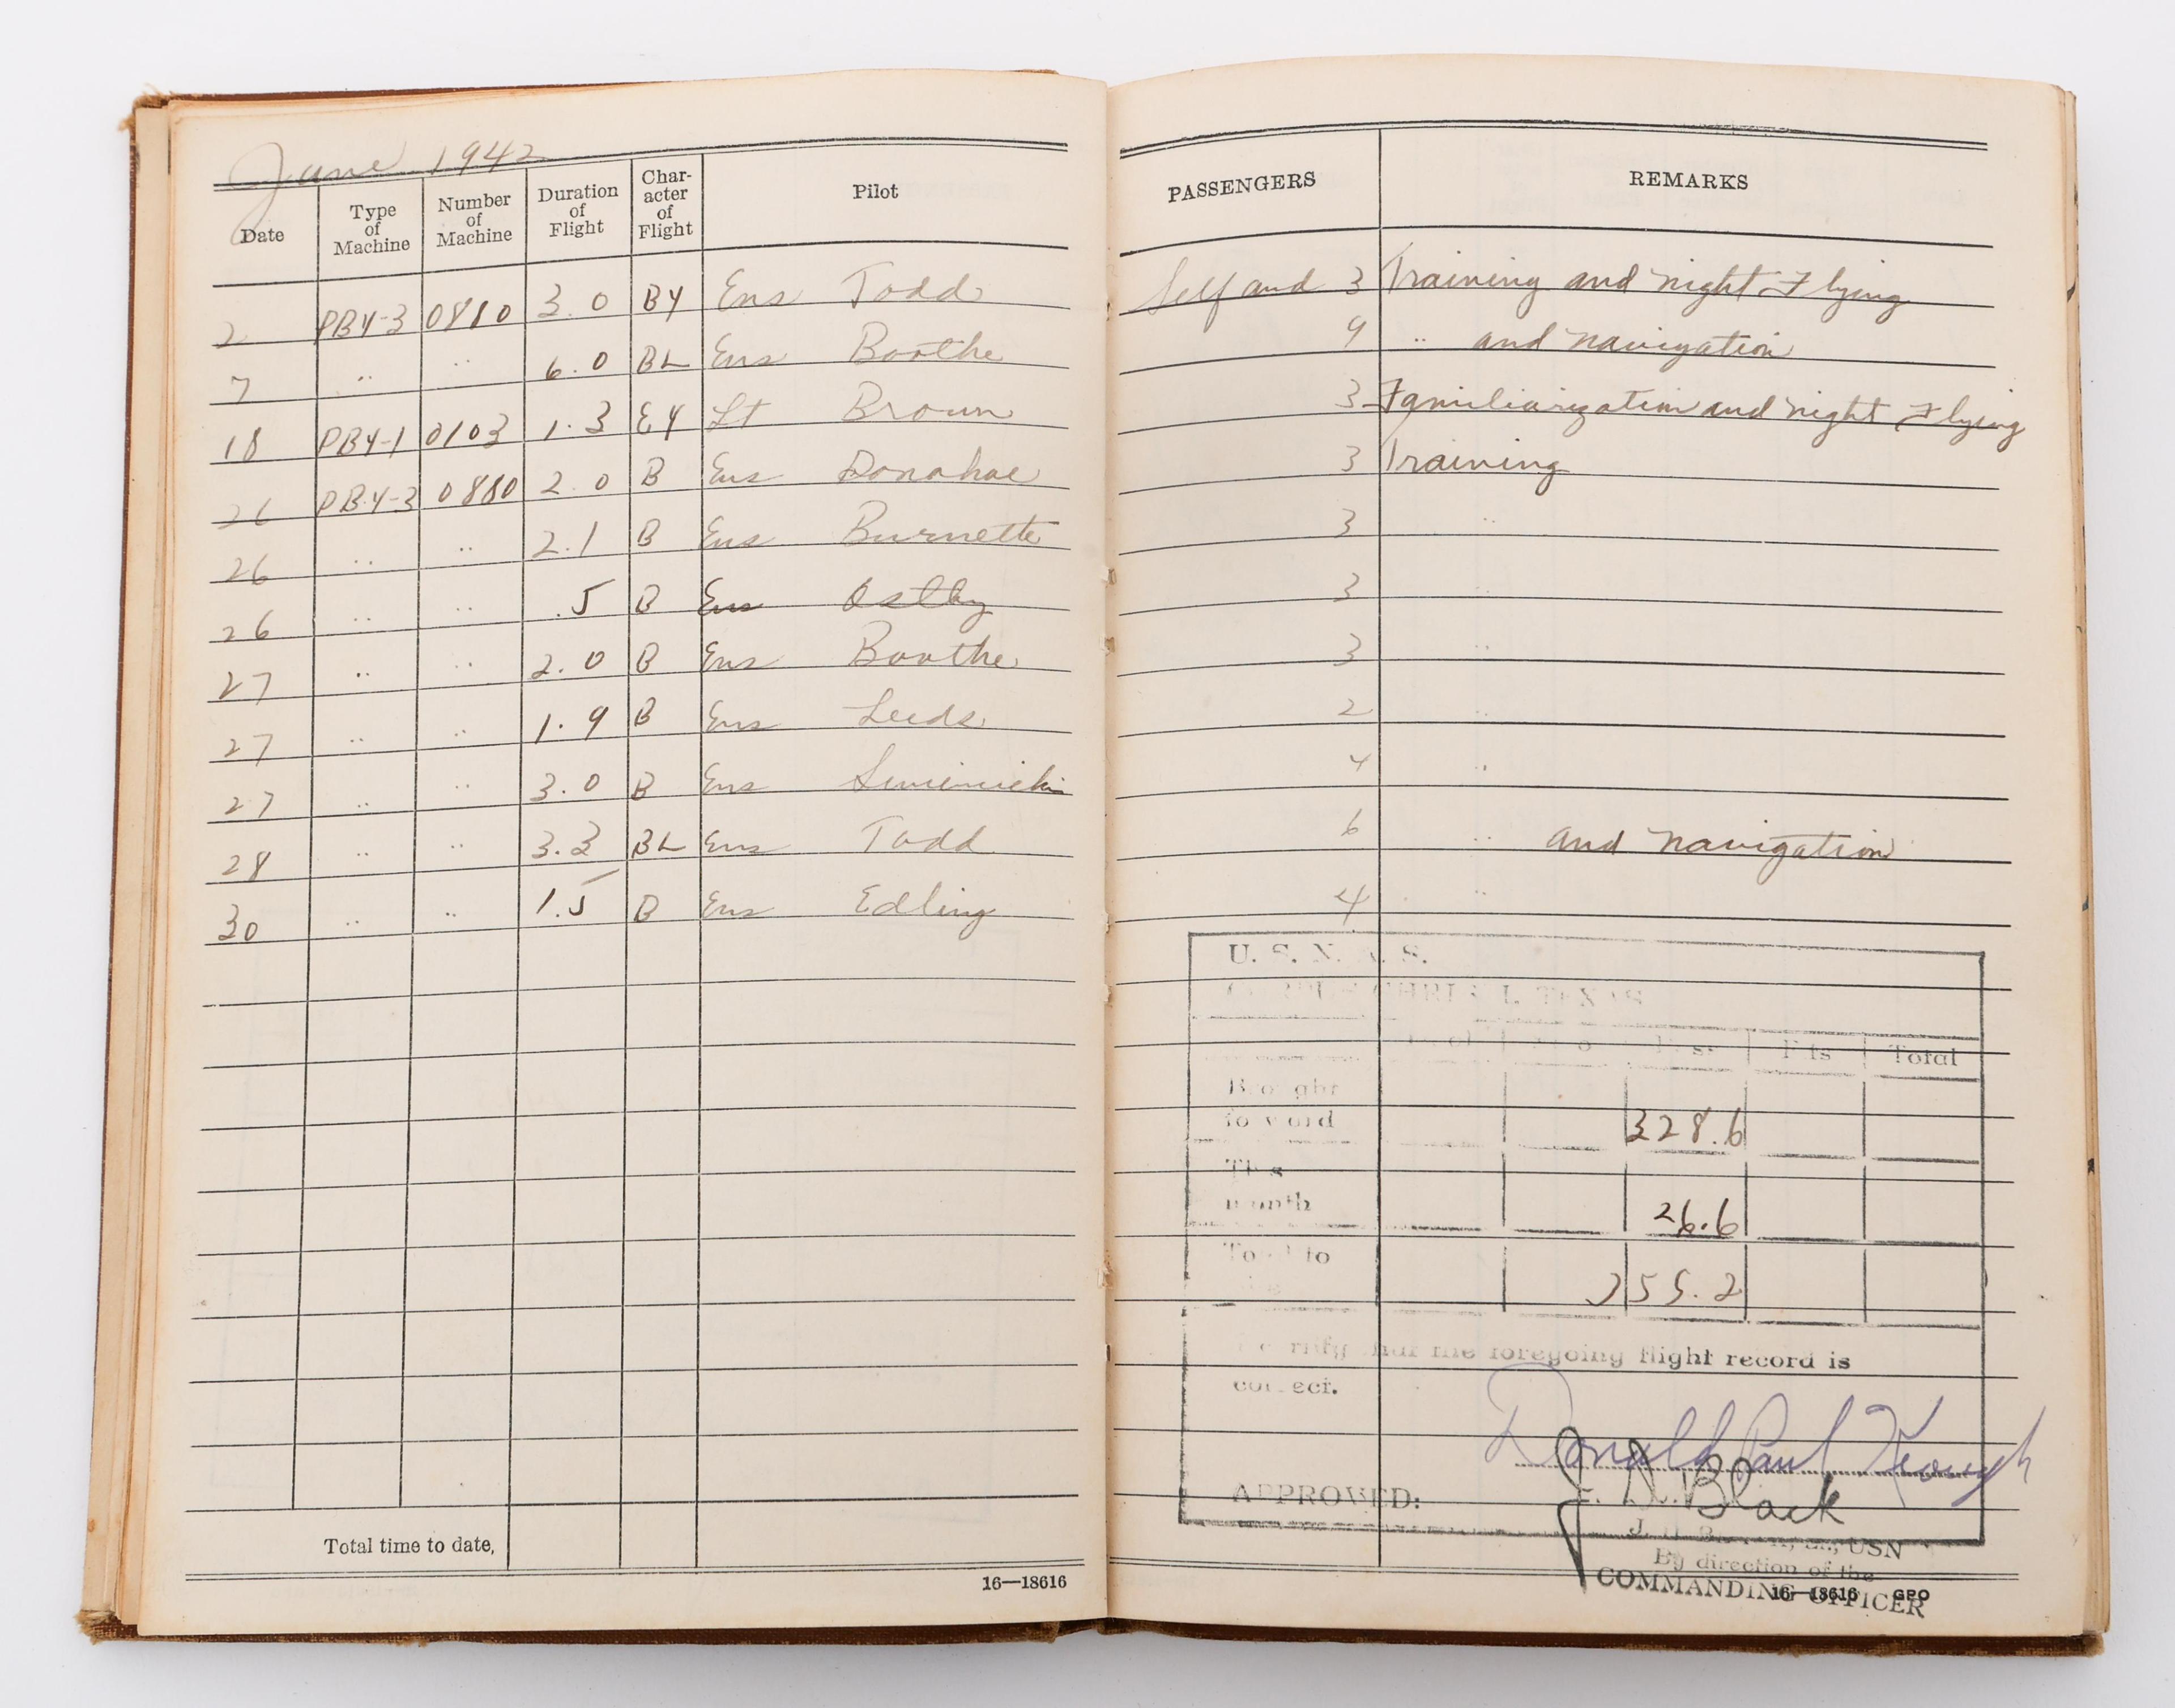 June 1942
Date Type of Machine Number of Machine Duration of Flight Char-acter of Flight Pilot PASSENGERS REMARKS
2 PBY-3 0810 3.0 BY Ens Todd Self and 3 Training and night Flying
7 .. .. 6.0 BL Ens Boothe 9 .. and navigation
18 PBY-1 0103 1.3 EY Lt Brown 3 Familiarization and night Flying
26 PBY-3 0880 2.0 B Ens Donahoe 3 Training
26 .. .. 2.1 B Ens Burnette 3 ..
26 .. .. .5 B Ens Ostby 3 ..
27 .. .. 2.0 B Ens Boothe 3 ..
27 .. .. 1.9 B Ens Leeds 2 ..
27 .. .. 3.0 B Ens 4 ..
28 .. .. 3.3 BL Ens Todd 6 .. and navigation
30 .. .. 1.5 B Ens Edling 4 ..
U. S. N. A. S.
CORPUS CHRISTI, TEXAS
Total
Brought
forward 328.6
This
month 26.6
Total to
355.2
certify that the foregoing flight record is
correct.
Donald Paul Keough
APPROVED: J. N. Black
USN
By direction of the
COMMANDING OFFICER
Total time to date,
16—18616
16—18616 GPO